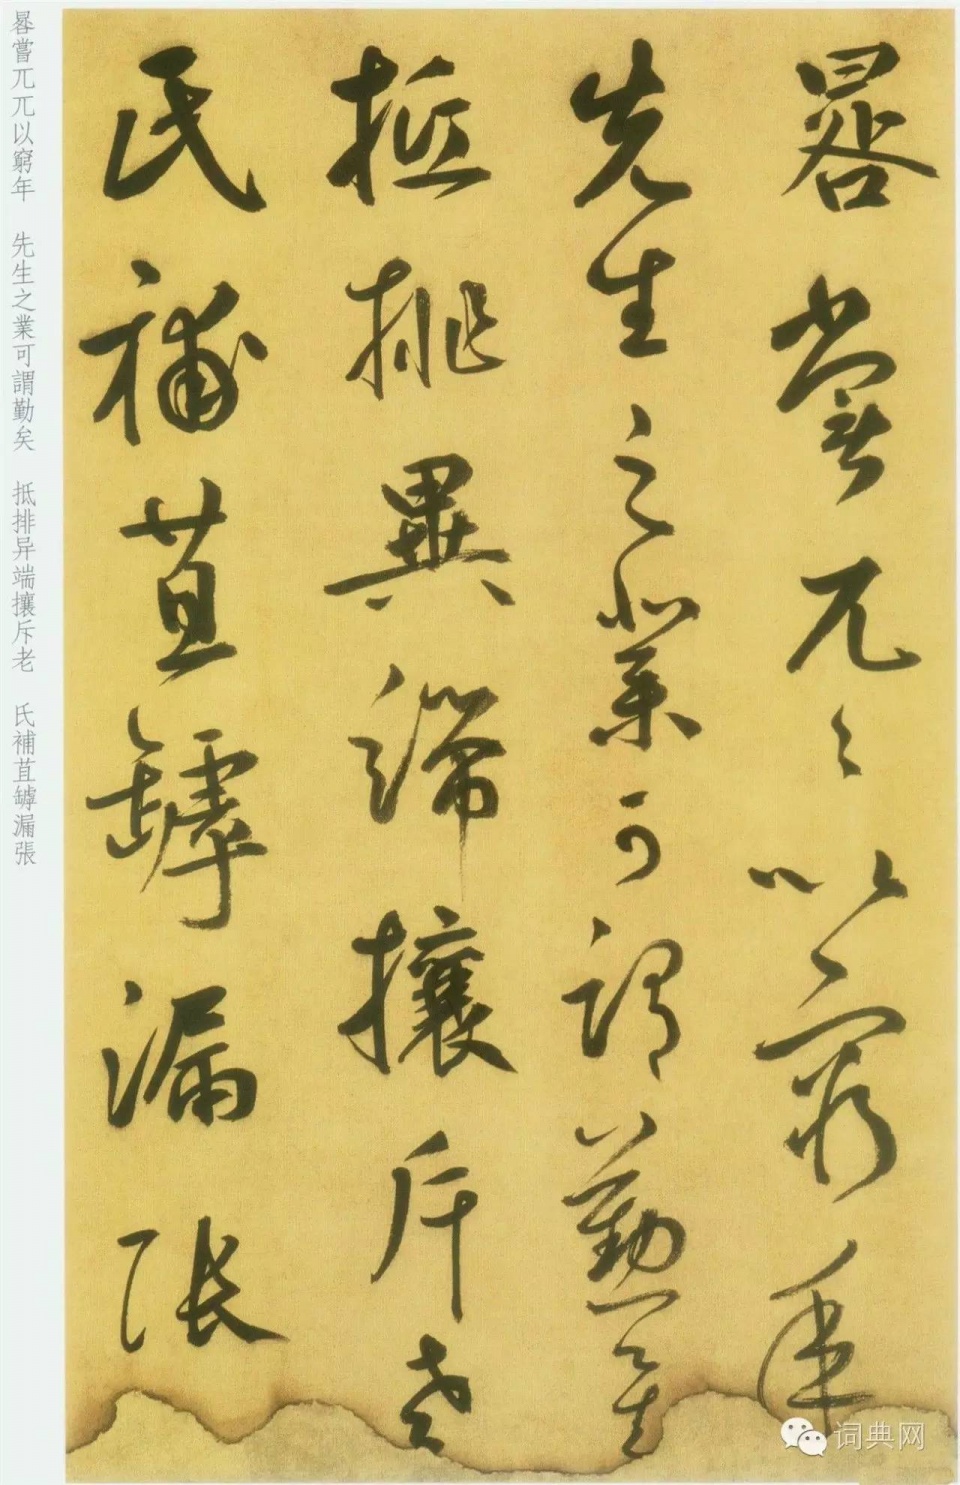 晷嘗兀々以窮年
先生之業可謂勤矣
抵排異端攘斥老
氏補苴罅漏張
晷嘗兀兀以窮年 先生之業可謂勤矣 抵排异端攘斥老 氏補苴罅漏張
词典网